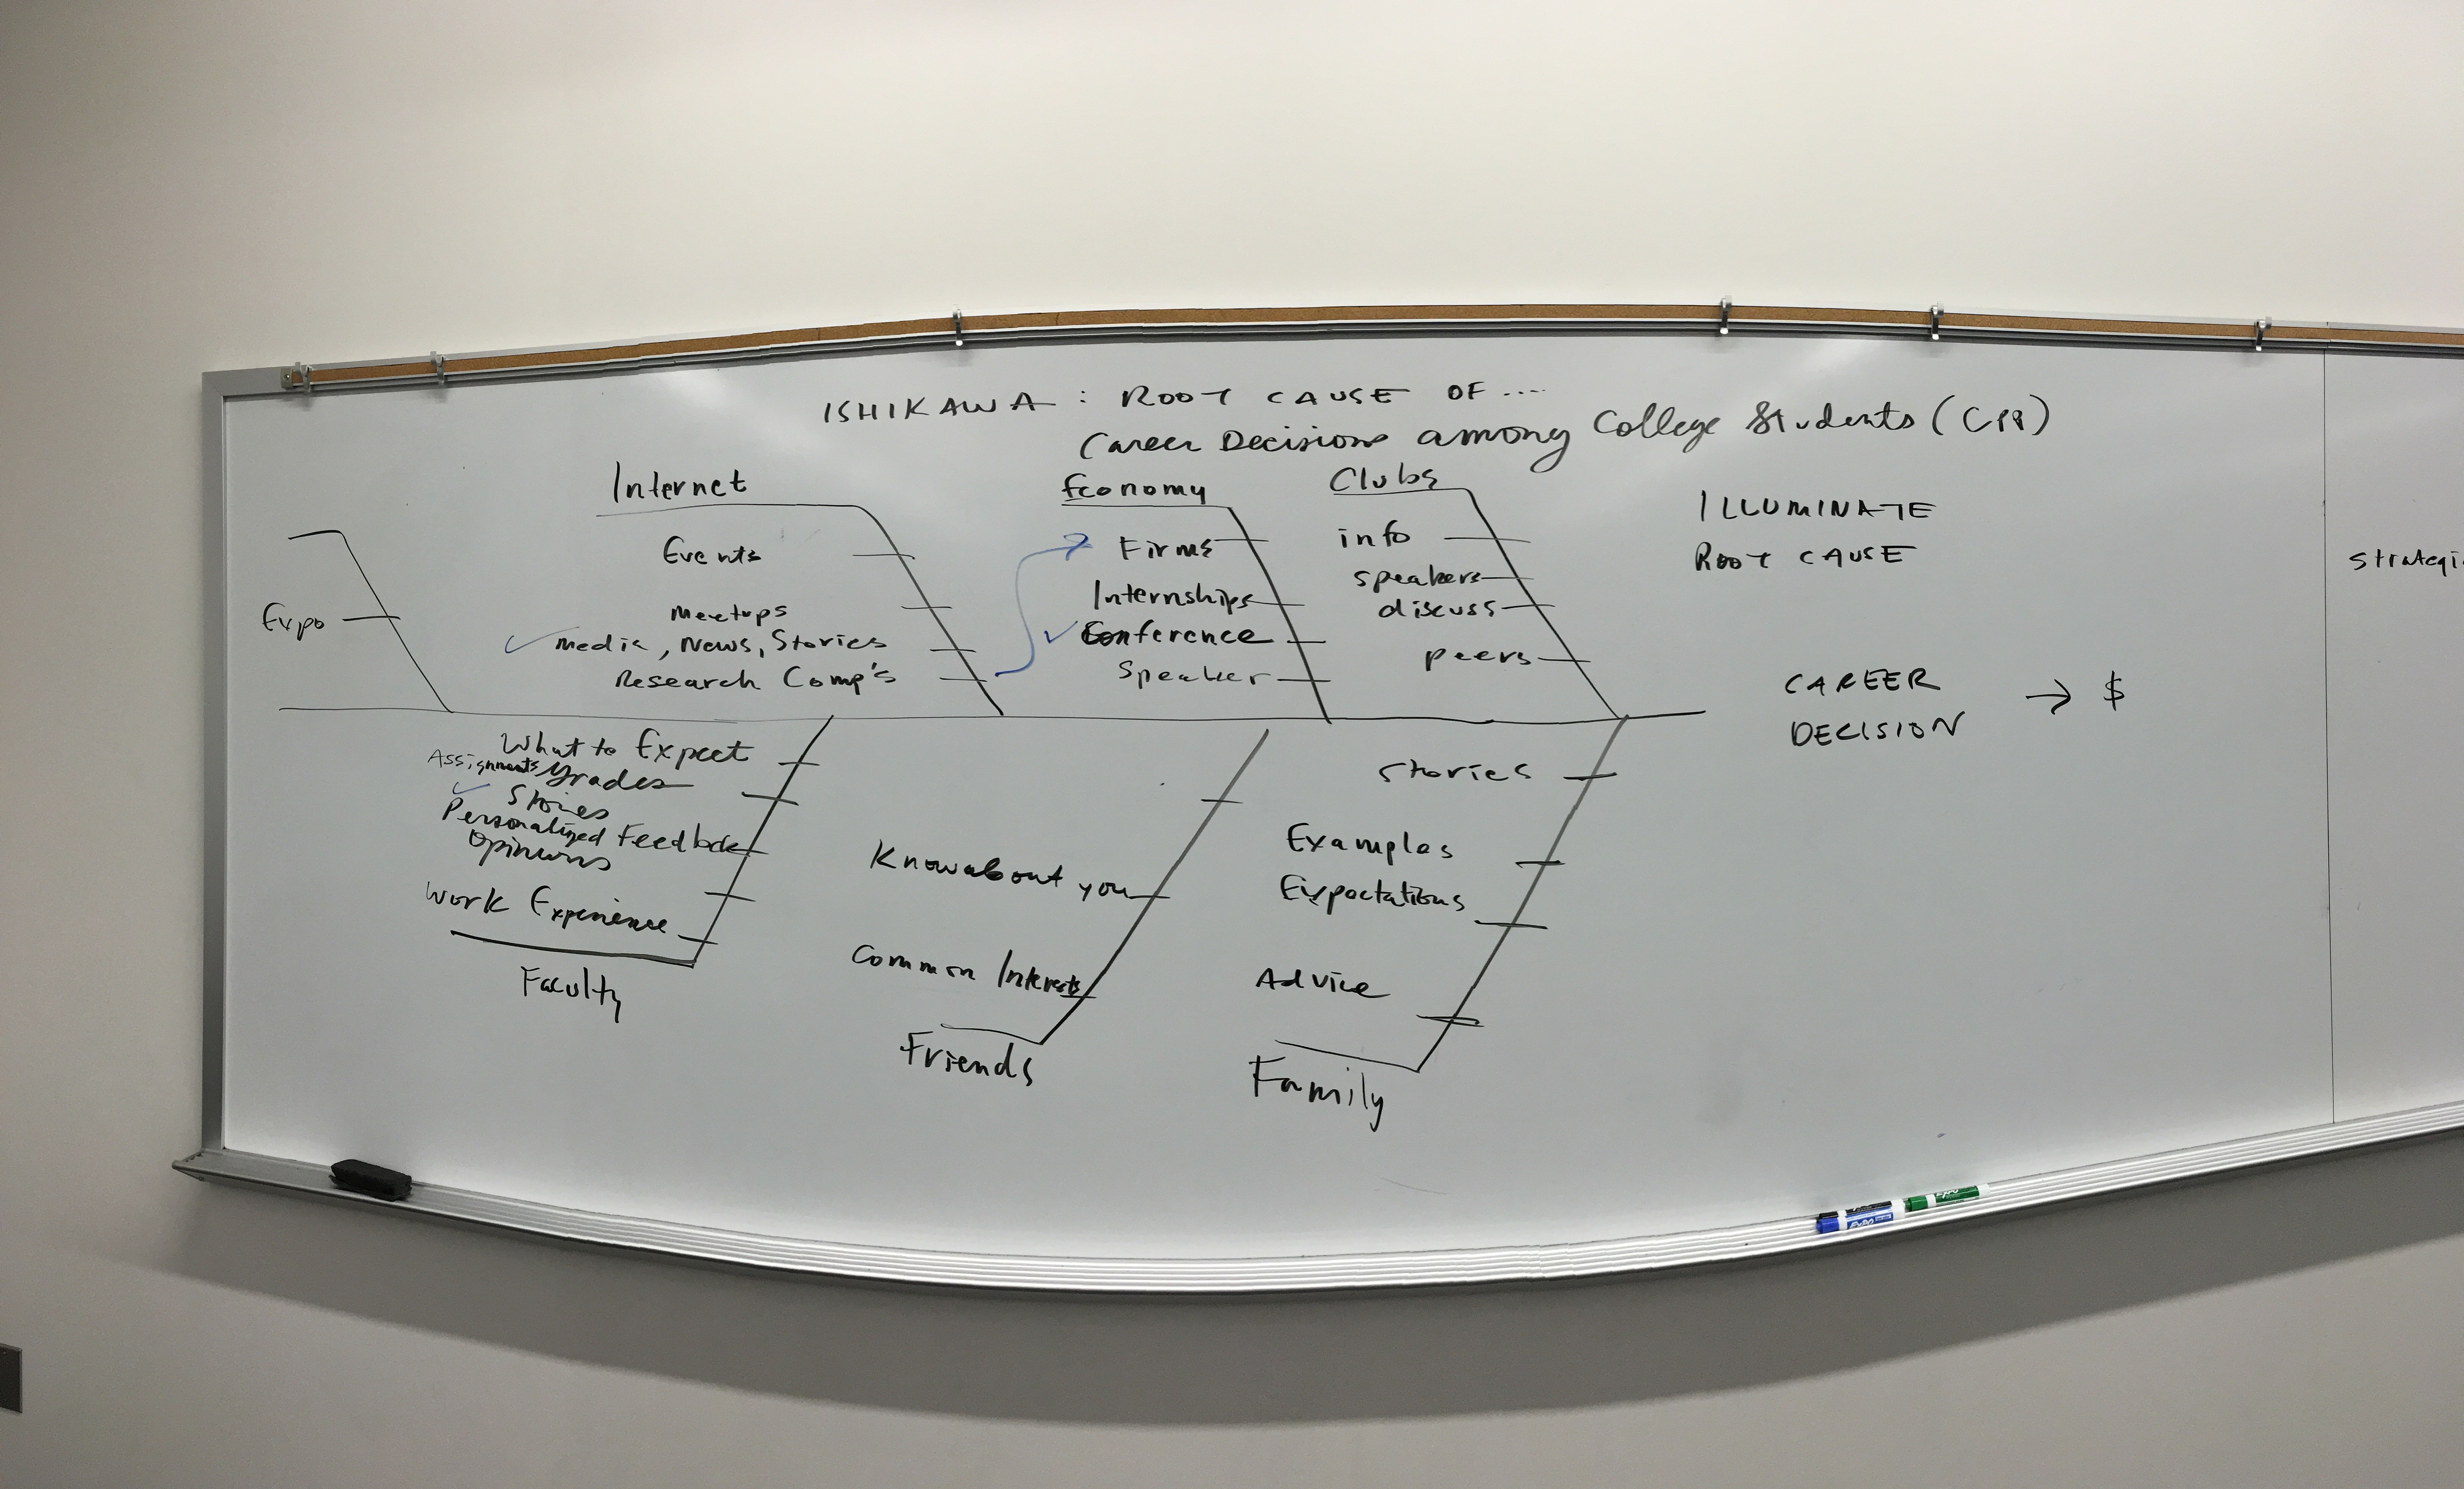 ISHIKAWA : ROOT CAUSE OF ....
Career Decisions among College Students
Internet
Events
Meetups
Media, News, Stories
Research Comp's
Economy
Firms
Internships
Conference
Speaker
Clubs
info
speakers
discuss
peers
ILLUMINATE
ROOT CAUSE
strategi
Expo
CAREER
DECISION → $
What to Expect
Assignments Grades
Stories
Personalized Feedback
Opinions
Work Experience
Faculty
Know about you
Common Interests
Friends
Stories
Examples
Expectations
Advice
Family
expo